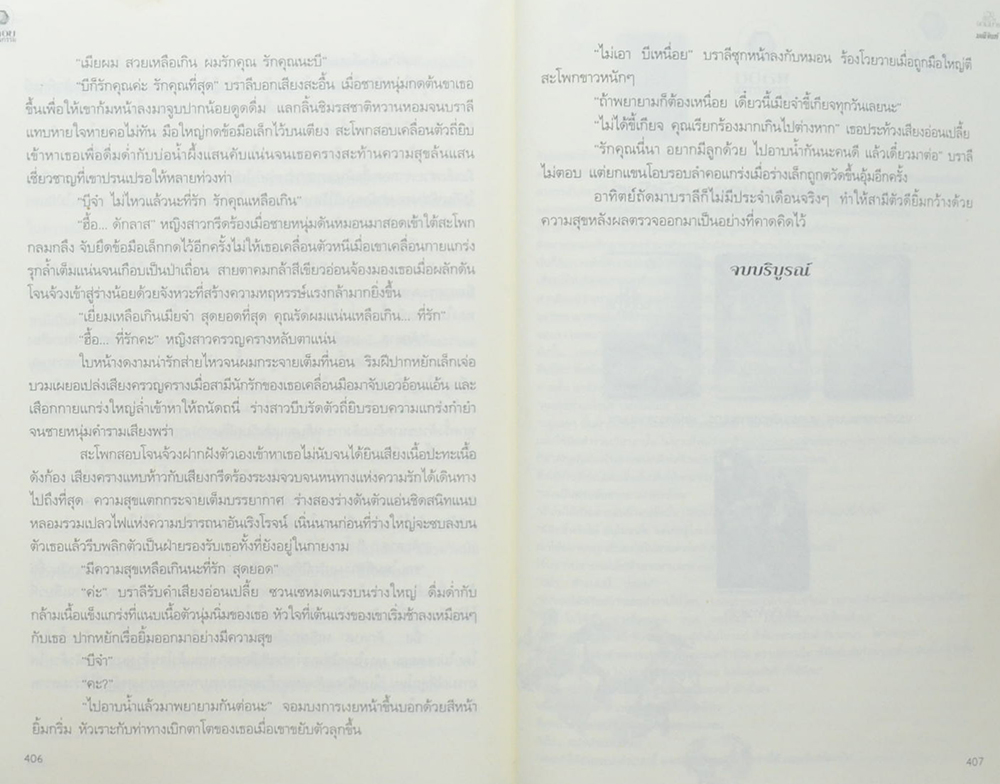 "เมียผม สวยเหลือเกิน ผมรักคุณ รักคุณนะบี"
"บีก็รักคุณค่ะ รักคุณที่สุด" บราลีบอกเสียงสะอื้น เมื่อชายหนุ่มกดต้นขาเธอ
ขึ้นเพื่อให้เขาก้มหน้าลงมาจูบปากน้อยดูดดื่ม แลกลิ้นชิมรสชาติหวานหอมจนบราลี
แทบหายใจหายคอไม่ทัน มือใหญ่กดข้อมือเล็กไว้บนเตียง สะโพกสอบเคลื่อนตัวถี่ยิบ
เข้าหาเธอเพื่อดื่มด่ำกับบ่อน้ำผึ้งแสนคับแน่นจนเธอครางสะท้านความสุขล้นแสน
เชี่ยวชาญที่เขาปรนเปรอให้หลายท่วงท่า
"บีจ๋า ไม่ไหวแล้วนะที่รัก รักคุณเหลือเกิน"
"ฮื้อ... ดักลาส" หญิงสาวกรีดร้องเมื่อชายหนุ่มดันหมอนมาสอดเข้าใต้สะโพก
กลมกลึง จับยึดข้อมือเล็กกดไว้อีกครั้งไม่ให้เธอเคลื่อนตัวหนีเมื่อเขาเคลื่อนกายแกร่ง
รุกล้ำเต็มแน่นจนเกือบเป็นป่าเถื่อน สายตาคมกล้าสีเขียวอ่อนจ้องมองเธอเมื่อผลักดัน
โจนจ้วงเข้าสู่ร่างน้อยด้วยจังหวะที่สร้างความหฤหรรษ์แรงกล้ามากยิ่งขึ้น
"เยี่ยมเหลือเกินเมียจ๋า สุดยอดที่สุด คุณรัดผมแน่นเหลือเกิน... ที่รัก"
"ฮื้อ... ที่รักคะ" หญิงสาวครวญครางหลับตาแน่น
ใบหน้างดงามน่ารักส่ายไหวจนผมกระจายเต็มที่นอน ริมฝีปากหยักเล็กเจ่อ
บวมเผยอเปล่งเสียงครวญครางเมื่อสามีนักรักของเธอเคลื่อนมือมาจับเอวอ้อนแอ้น และ
เสือกกายแกร่งใหญ่ล่ำเข้าหาให้ถนัดถนี่ ร่างสาวบีบรัดตัวถี่ยิบรอบความแกร่งกำยำ
จนชายหนุ่มคำรามเสียงพร่า
สะโพกสอบโจนจ้วงฝากฝังตัวเองเข้าหาเธอไม่นับจนได้ยินเสียงเนื้อปะทะเนื้อ
ดังก้อง เสียงครางแหบห้าวกับเสียงกรีดร้องระงมจวบจนหนทางแห่งความรักได้เดินทาง
ไปถึงที่สุด ความสุขแตกกระจายเต็มบรรยากาศ ร่างสองร่างดันตัวแอ่นชิดสนิทแนบ
หลอมรวมเปลวไฟแห่งความปรารถนาอันเริงโรจน์ เนิ่นนานก่อนที่ร่างใหญ่จะซบลงบน
ตัวเธอแล้วรีบพลิกตัวเป็นฝ่ายรองรับเธอทั้งที่ยังอยู่ในกายงาม
"มีความสุขเหลือเกินนะที่รัก สุดยอด"
"ค่ะ" บราลีรับคำเสียงอ่อนเปลี้ย ซวนเซหมดแรงบนร่างใหญ่ ดื่มด่ำกับ
กล้ามเนื้อแข็งแกร่งที่แนบเนื้อตัวนุ่มนิ่มของเธอ หัวใจที่เต้นแรงของเขาเริ่มช้าลงเหมือนๆ
กับเธอ ปากหยักเรื่อยิ้มออกมาอย่างมีความสุข
"บีจ๋า"
"คะ?"
"ไปอาบน้ำแล้วมาพยายามกันต่อนะ" จอมบงการเงยหน้าขึ้นบอกด้วยสีหน้า
ยิ้มกริ่ม หัวเราะกับท่าทางเบิกตาโตของเธอเมื่อเขาขยับตัวลุกขึ้น
406
"ไม่เอา บีเหนื่อย" บราลีซุกหน้าลงกับหมอน ร้องโวยวายเมื่อถูกมือใหญ่ตี
สะโพกขาวหนักๆ
"ถ้าพยายามก็ต้องเหนื่อย เดี๋ยวนี้เมียจ๋าขี้เกียจทุกวันเลยนะ"
"ไม่ได้ขี้เกียจ คุณเรียกร้องมากเกินไปต่างหาก" เธอประท้วงเสียงอ่อนเปลี้ย
"รักคุณนี่นา อยากมีลูกด้วย ไปอาบน้ำกันนะคนดี แล้วเดี๋ยวมาต่อ" บราลี
ไม่ตอบ แต่ยกแขนโอบรอบลำคอแกร่งเมื่อร่างเล็กถูกตวัดขึ้นอุ้มอีกครั้ง
อาทิตย์ถัดมาบราลีก็ไม่มีประจำเดือนจริงๆ ทำให้สามีตัวดียิ้มกว้างด้วย
ความสุขหลังผลตรวจออกมาเป็นอย่างที่คาดคิดไว้
จบบริบูรณ์
407